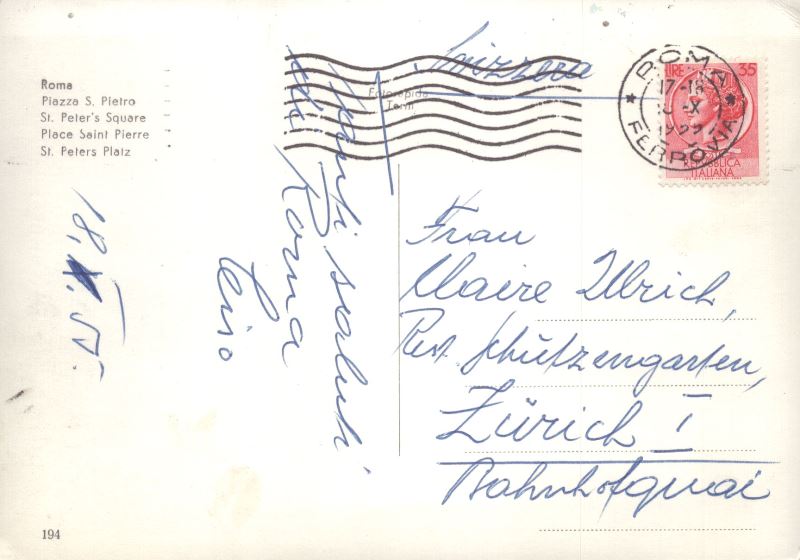 Roma
Piazza S. Pietro
St. Peter's Square
Place Saint Pierre
St. Peters Platz
Fotorapida
Terni
Svizzera
ROMA
17-18
X
FERROVIA
LIRE 35
REPUBBLICA
ITALIANA
18.X.55
tanti saluti
da Roma
Frau
Claire Ulrich,
Rest. Schützengarten,
Zürich I
Bahnhofquai
194